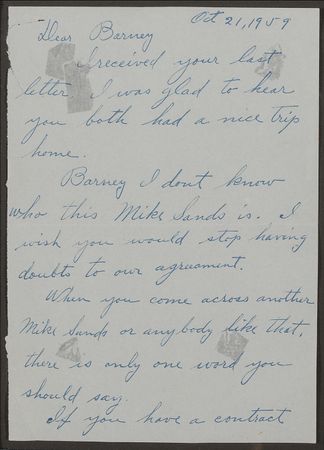 Oct 21, 1959
Dear Barney
I received your last
letter I was glad to hear
you both had a nice trip
home.
Barney I dont know
who this Mike Sands is. I
wish you would stop having
doubts to our agreement.
When you come across another
Mike Sands or anybody like that,
there is only one word you
should say.
If you have a contract